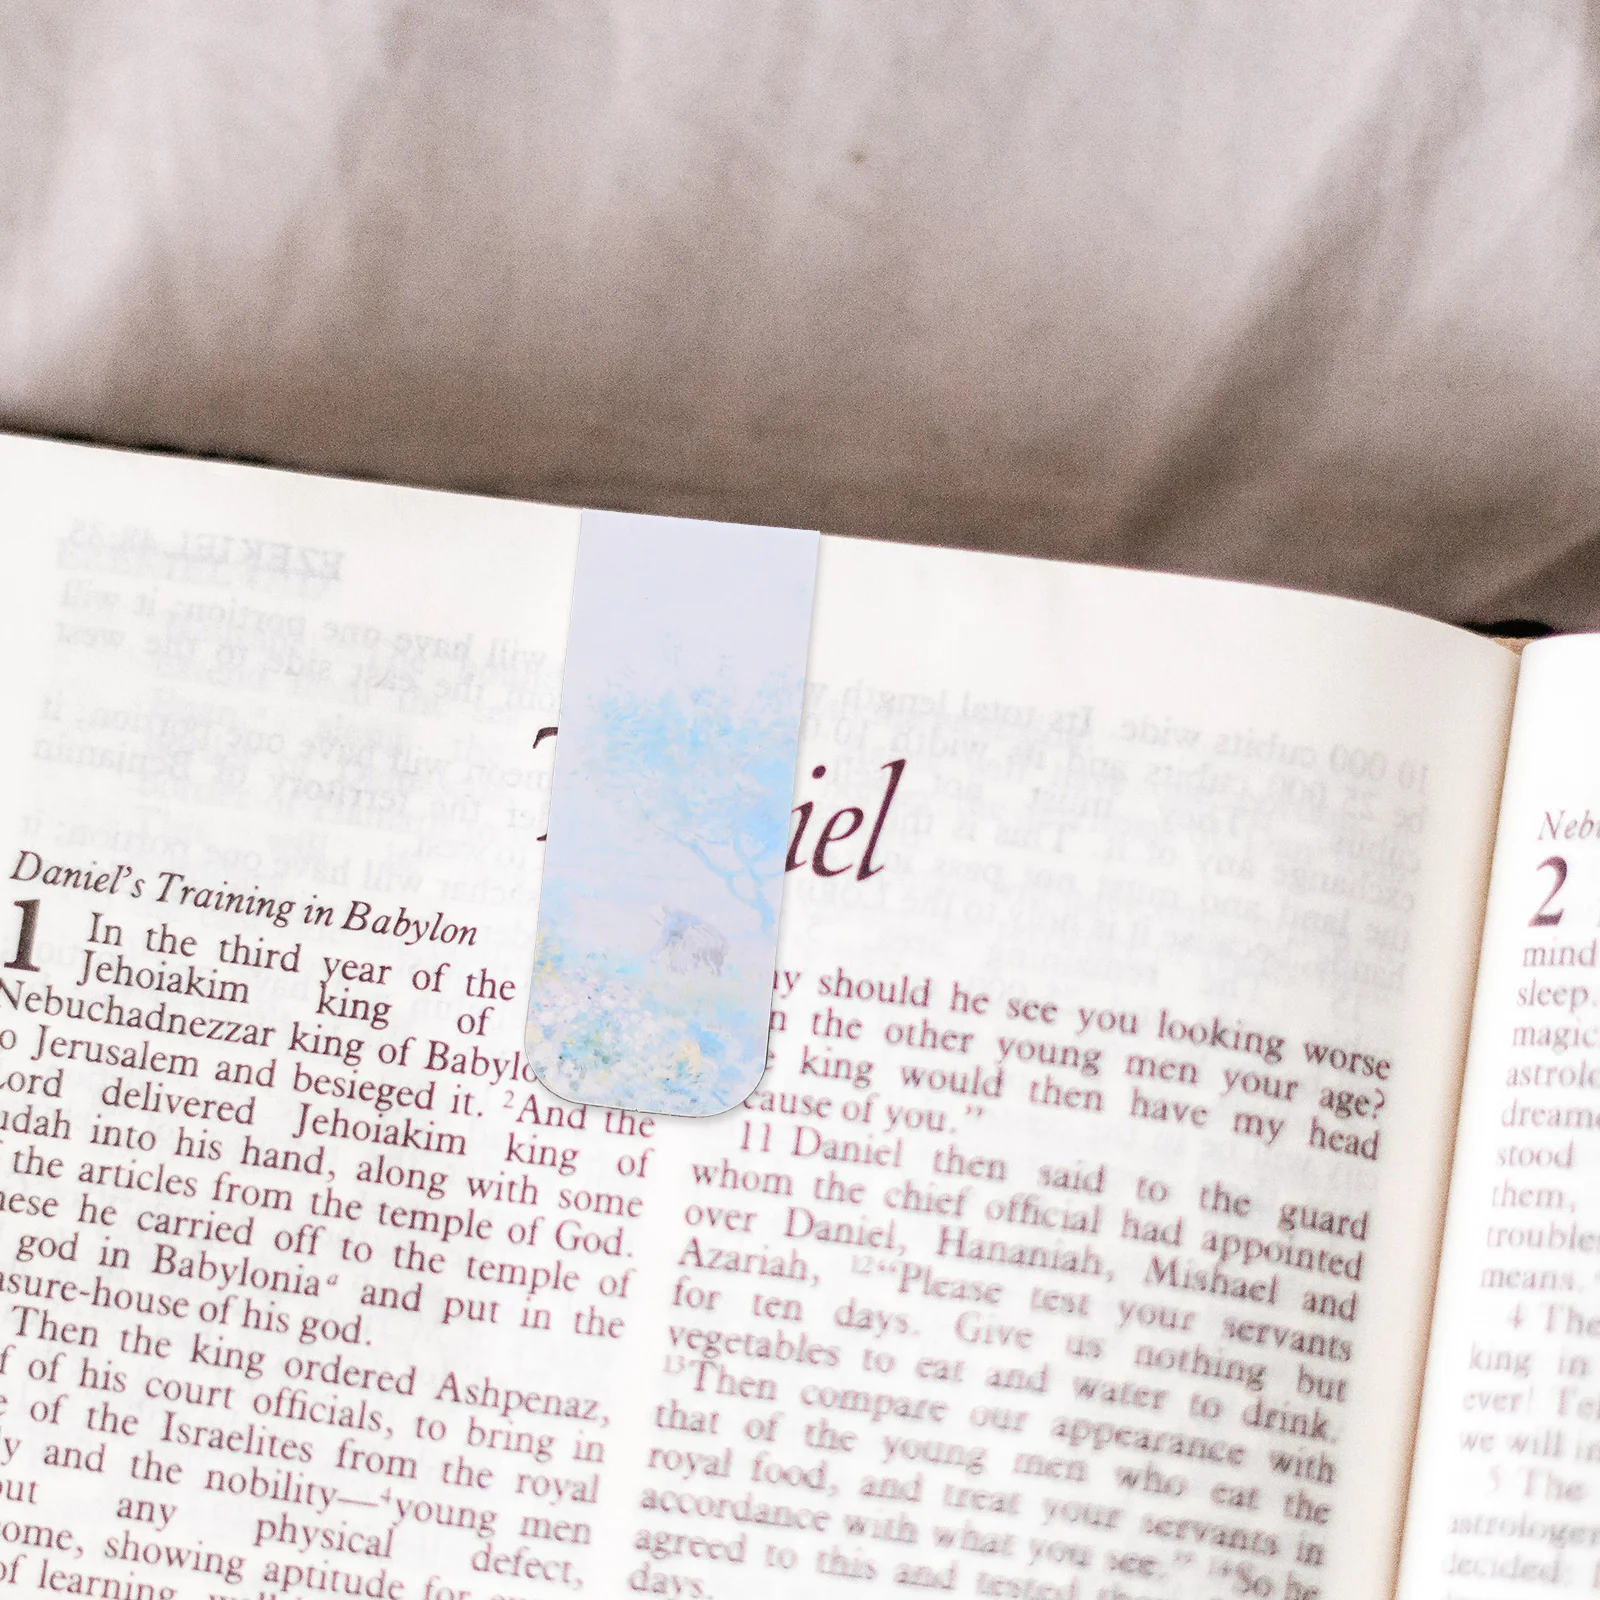 iel
Daniel's Training in Babylon
1 In the third year of the
Jehoiakim king of
Nebuchadnezzar king of Babylo
o Jerusalem and besieged it. ²And the
Lord delivered Jehoiakim king of
udah into his hand, along with some
the articles from the temple of God.
hese he carried off to the temple of
god in Babylonia a and put in the
asure-house of his god.
Then the king ordered Ashpenaz,
f of his court officials, to bring in
e of the Israelites from the royal
ly and the nobility—⁴young men
out any physical defect,
ome, showing aptitude for
of learning,
hy should he see you looking worse
n the other young men your age?
e king would then have my head
cause of you.”
11 Daniel then said to the guard
whom the chief official had appointed
over Daniel, Hananiah, Mishael and
Azariah, ¹²“Please test your servants
for ten days. Give us nothing but
vegetables to eat and water to drink.
¹³Then compare our appearance with
that of the young men who eat the
royal food, and treat your servants in
accordance with what you see.” ¹⁴So he
agreed to this and tested
days.
Nebu
2
mind
sleep.
magic
astrolo
dream
stood
them,
trouble
means.
4 The
king in
ever! Tel
we will in
5 The
astrologer
decided: